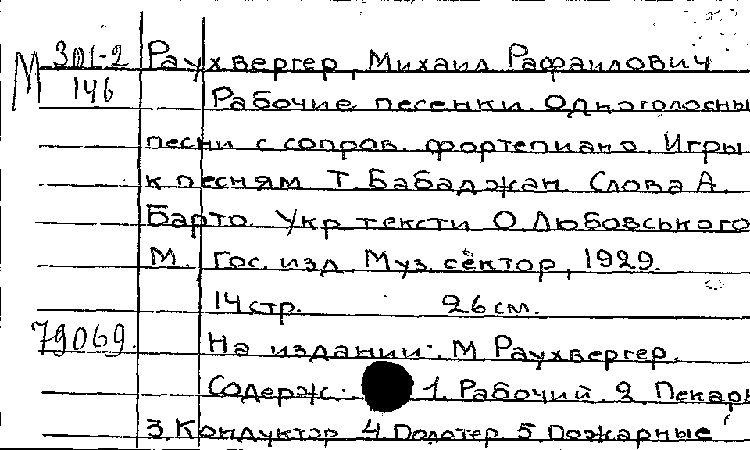 М 301-2 Раухвергер, Михаил Рафаилович
146 Рабочие песенки. Одноголосны
песни с сопров. фортепиано. Игры
к песням Т. Бабаджан. Слова А.
Барто. Укр. тексти О. Любовського
М. Гос. изд. Муз. сектор, 1929.
14 стр. 26 см.
79069. На издании: М. Раухвергер.
Содерж.: 1. Рабочий. 2. Пекарь
3. Кондуктор 4. Полотер 5. Пожарные